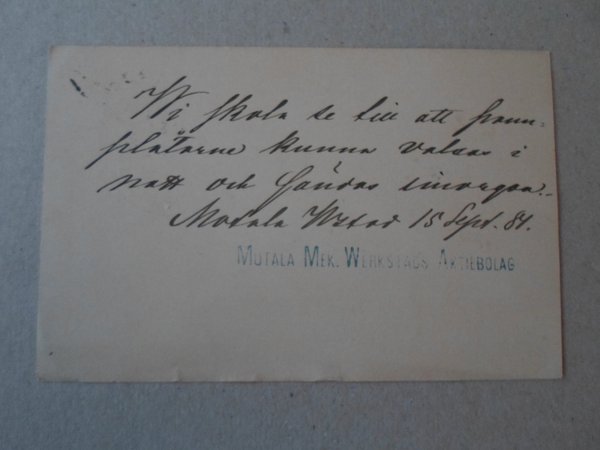 Vi skola se till att pann-
plåtarne kunna valsas i
natt och sändas imorgon.
Motala Wstad 15 Sept. 81.
MOTALA MEK. WERKSTADS AKTIEBOLAG